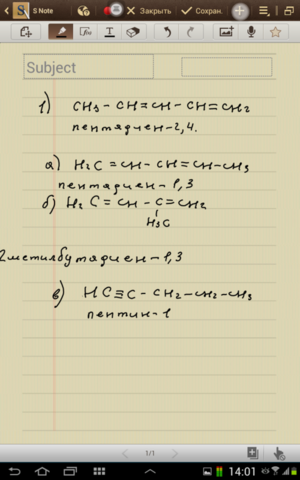 S Note
Закрыть
Сохран.
Subject
1) CH3 - CH = CH - CH = CH2
пентадиен-2,4.
а) H2C = CH - CH = CH - CH3
пентадиен-1,3
б) H2C = CH - C = CH2
H3C
2метилбутадиен-1,3
в) HC ≡ C - CH2 - CH2 - CH3
пентин-1
1/1
14:01